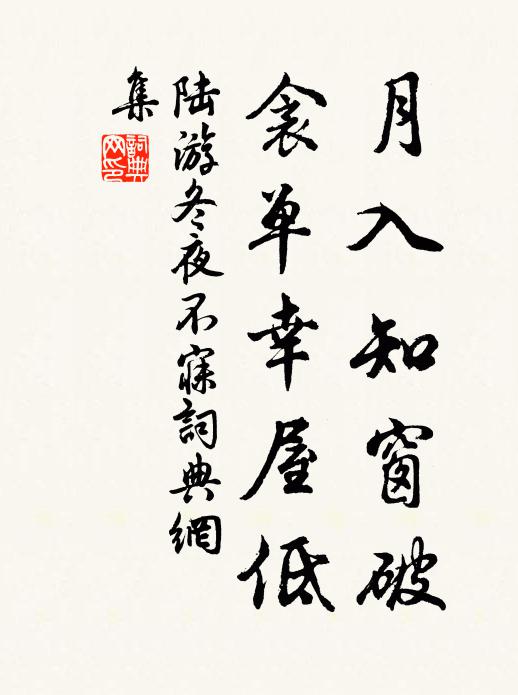 月入知窗破
衾单幸屋低
陆游冬夜不寐詞典網
集
詞典
网印